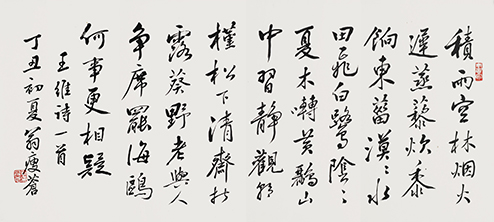 積雨空林烟火
遲蒸藜炊黍
餉東菑漠〻水
田飛白鷺陰〻
夏木囀黃鸝山
中習靜觀朝
槿松下清齋折
露葵野老與人
爭席罷海鷗
何事更相疑
王維詩一首
丁丑初夏翁瘦蒼